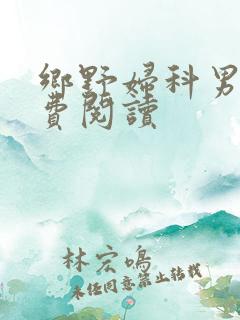 鄉野婦科男
費閱讀
林宏鳴
未任同意禁止转载